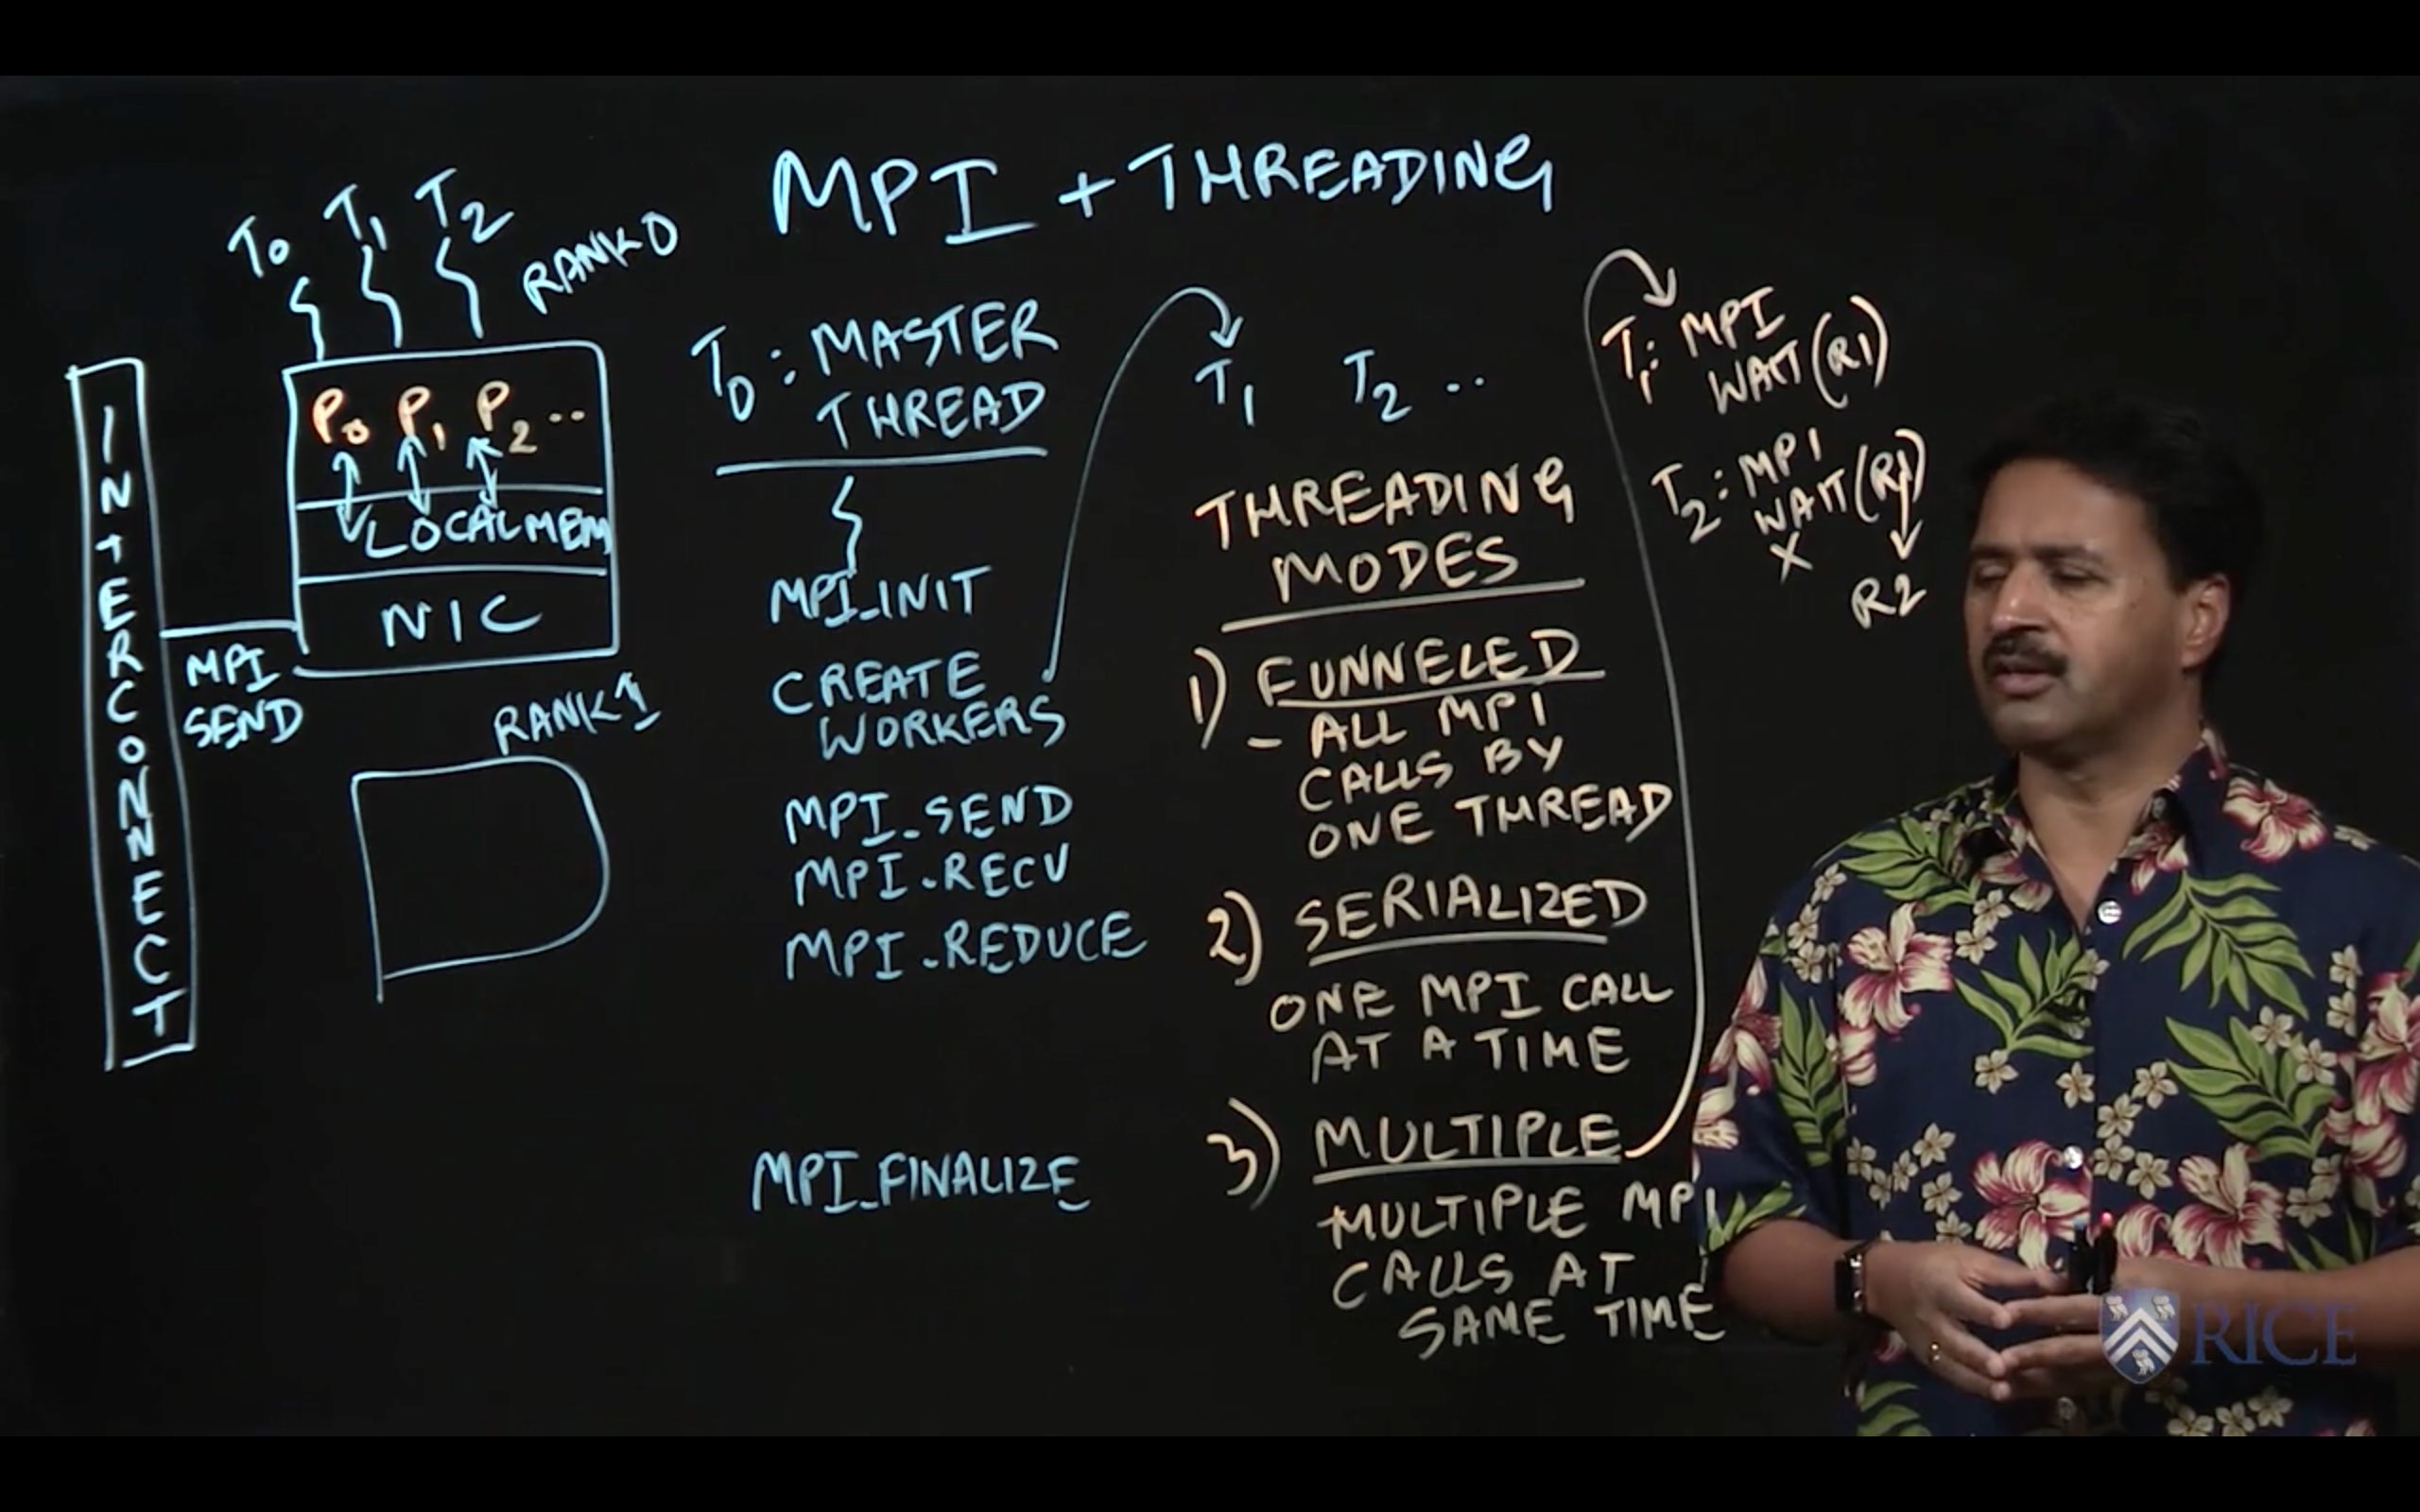 MPI + THREADING
T0 T1 T2
RANK 0
P0 P1 P2 ..
LOCAL MEM
NIC
INTERCONNECT
MPI
SEND
RANK 1
T0: MASTER
THREAD
MPI_INIT
CREATE
WORKERS
MPI_SEND
MPI_RECV
MPI_REDUCE
MPI_FINALIZE
T1 T2 ..
THREADING
MODES
1) FUNNELED
- ALL MPI
CALLS BY
ONE THREAD
2) SERIALIZED
ONE MPI CALL
AT A TIME
3) MULTIPLE
MULTIPLE MPI
CALLS AT
SAME TIME
T1: MPI
WAIT (R1)
T2: MPI
WAIT (R1)
X
R2
RICE